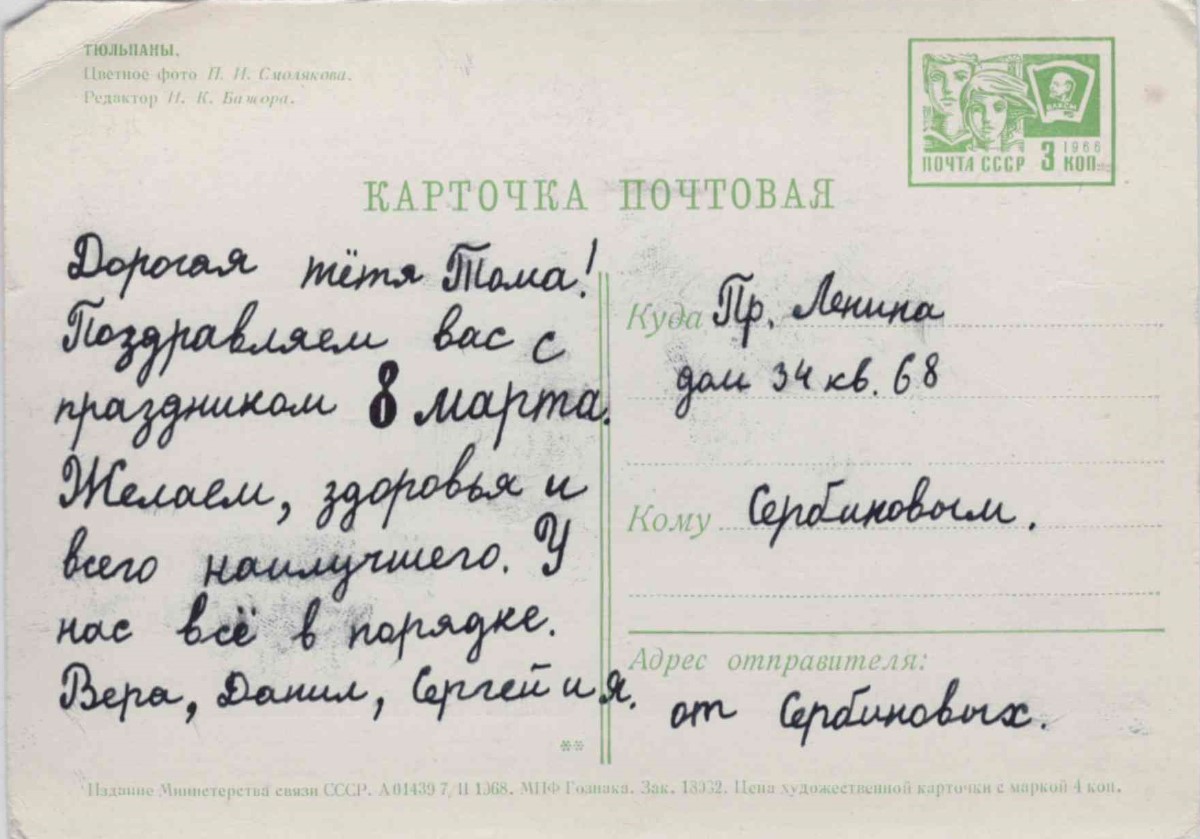 ТЮЛЬПАНЫ.
Цветное фото П. И. Смолякова.
Редактор И. К. Бажора.
ВЛКСМ
ПОЧТА СССР 3 КОП. 1966
КАРТОЧКА ПОЧТОВАЯ
Дорогая тётя Тома!
Поздравляем вас с
праздником 8 марта.
Желаем, здоровья и
всего наилучшего. У
нас всё в порядке.
Вера, Данил, Сергей и я.
Куда Пр. Ленина
дом 34 кв. 68
Кому Сербиновым.
Адрес отправителя:
от Сербиновых.
Издание Министерства связи СССР. А 01439 7/II 1968. МПФ Гознака. Зак. Цена художественной карточки с маркой 4 коп.